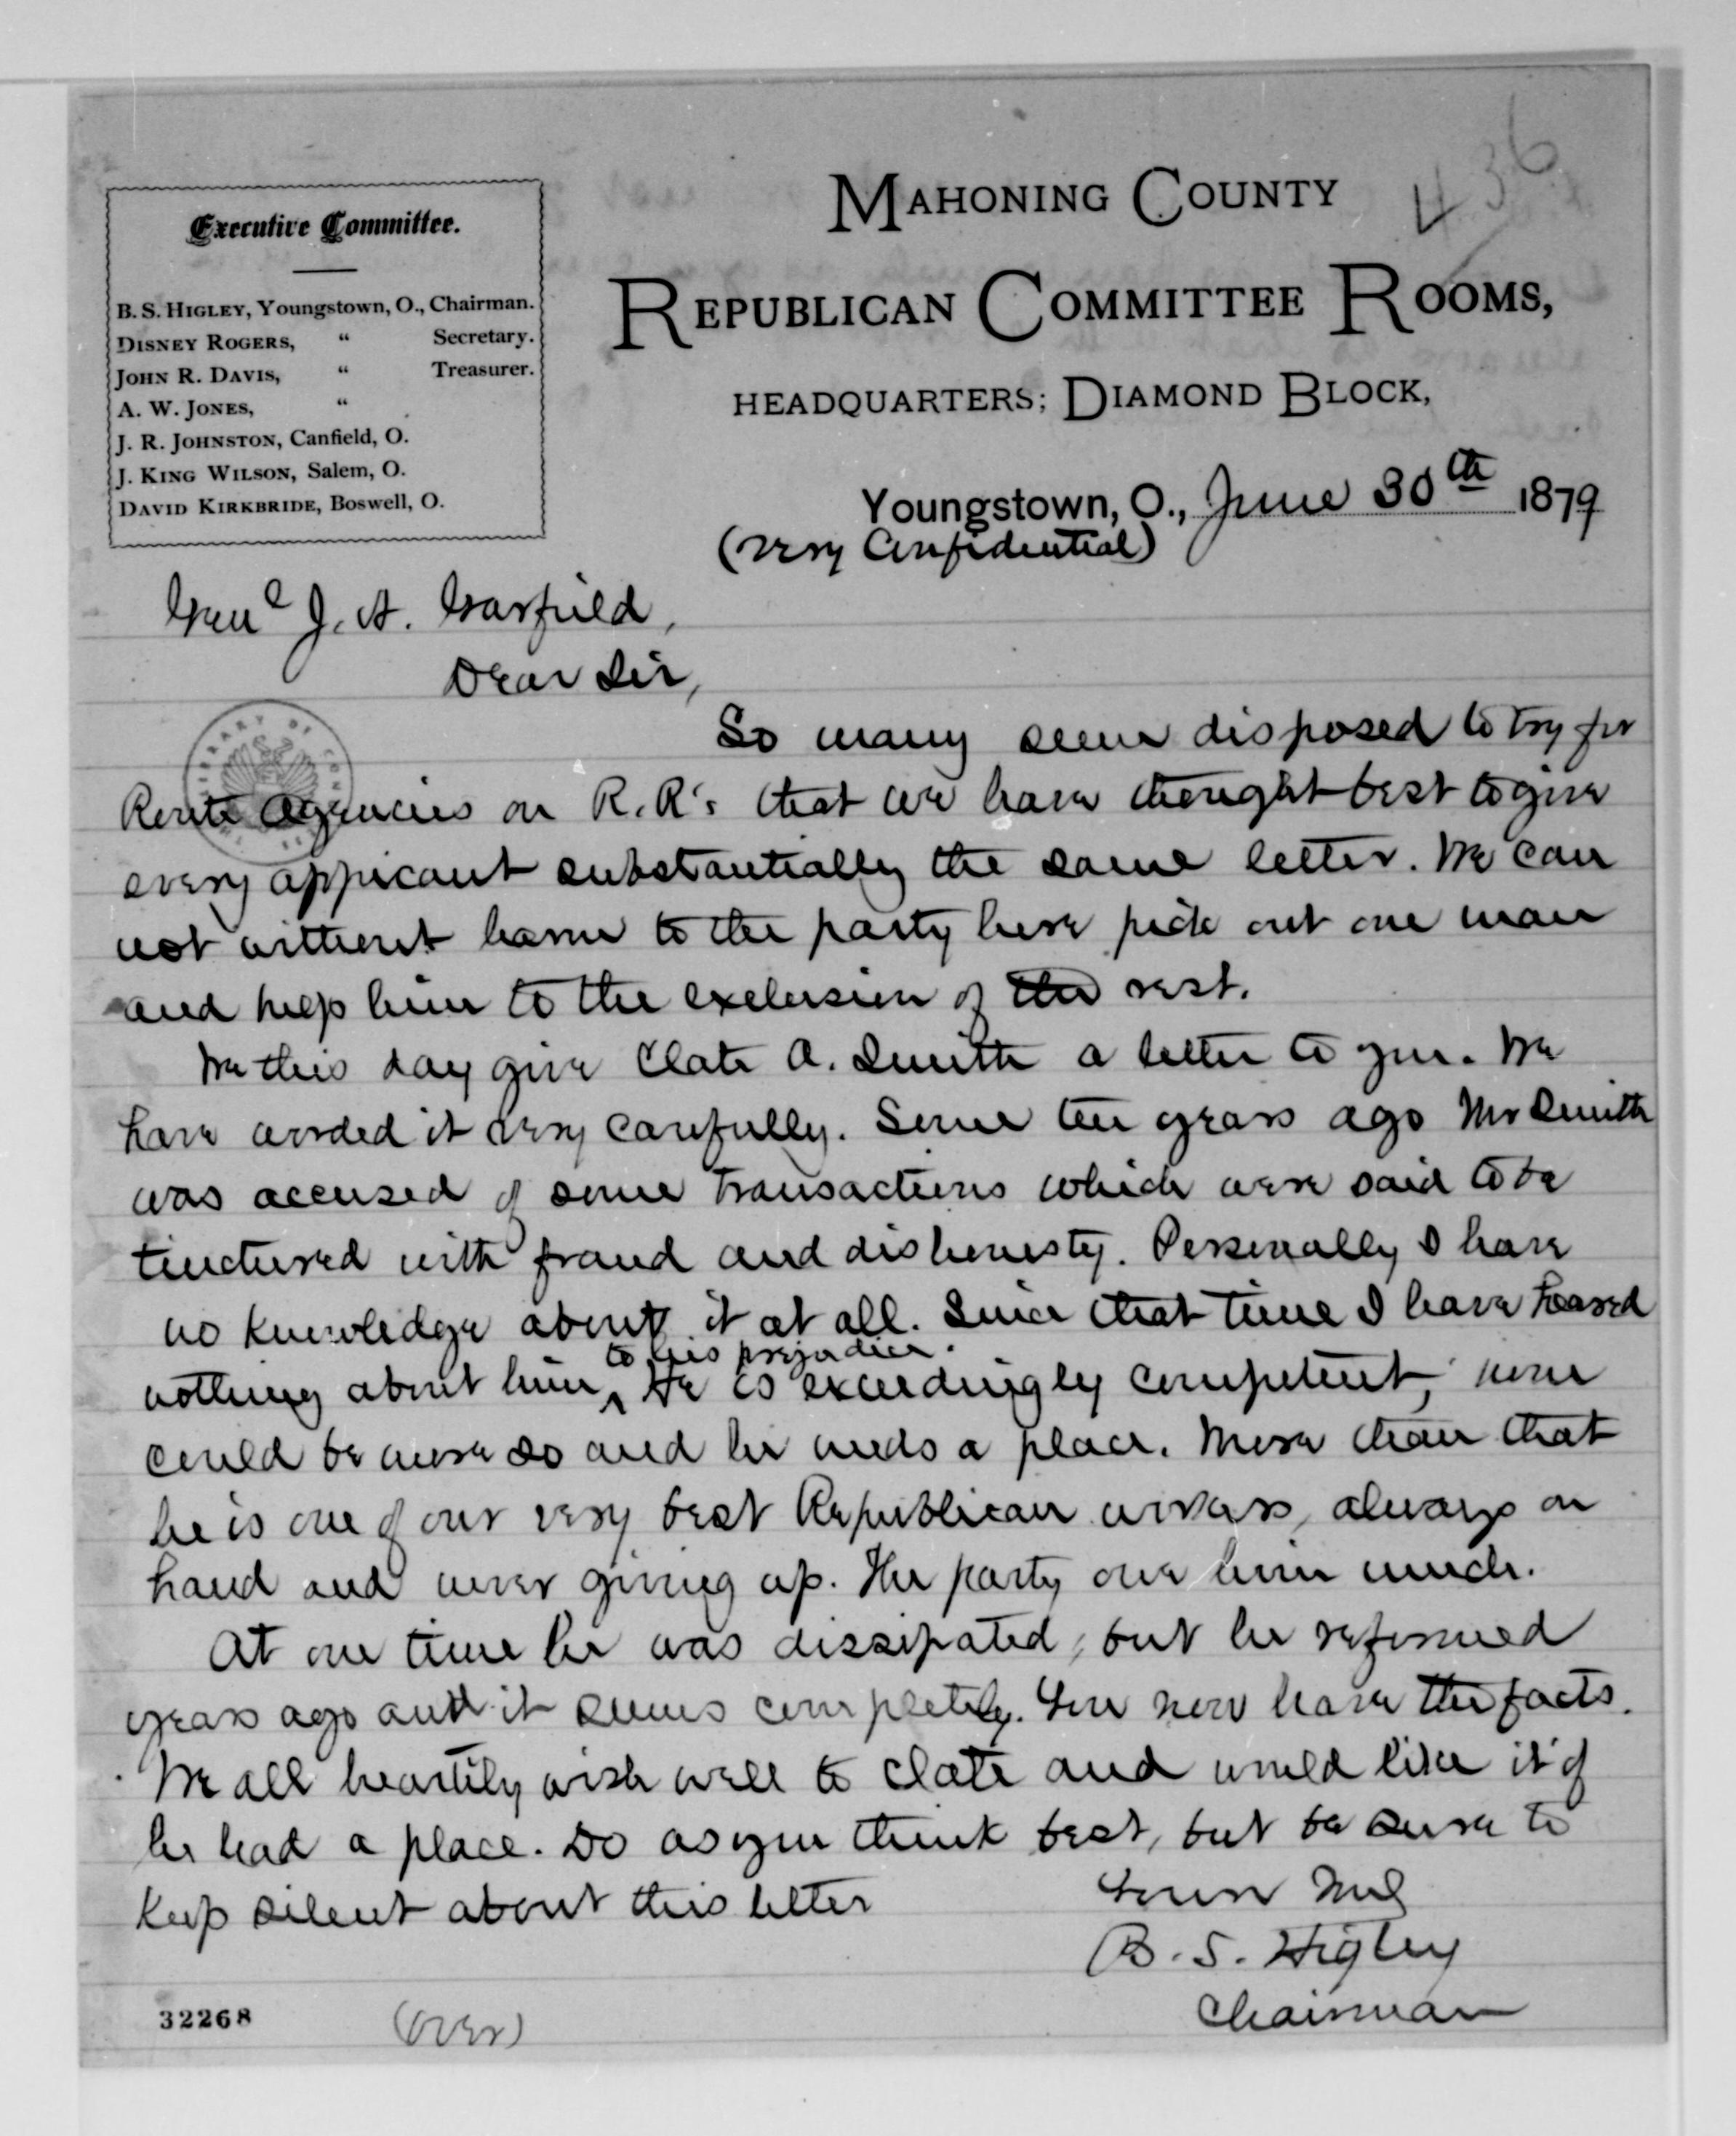 436
Executive Committee.
B. S. HIGLEY, Youngstown, O., Chairman.
DISNEY ROGERS, " Secretary.
JOHN R. DAVIS, " Treasurer.
A. W. JONES, "
J. R. JOHNSTON, Canfield, O.
J. KING WILSON, Salem, O.
DAVID KIRKBRIDE, Boswell, O.
MAHONING COUNTY
REPUBLICAN COMMITTEE ROOMS,
HEADQUARTERS; DIAMOND BLOCK,
Youngstown, O., June 30th 1879
(Very Confidential)
Genl J. A. Garfield,
Dear Sir,
So many seem disposed to try for
Route Agencies on R.R's that we have thought best to give
every appicant substantially the same letter. We can
not without harm to the party here pick out one man
and help him to the exclusion of the rest.
We this day give Clate A. Smith a letter to you. We
have worded it very carefully. Some ten years ago Mr Smith
was accused of some transactions which were said to be
tinctured with fraud and dishonesty. Personally I have
no knowledge about it at all. Since that time I have heard
to his prejudice.
nothing about him ^ He is exceedingly competent, none
could be more so and he needs a place. More than that
he is one of our very best Republican workers, always on
hand and never giving up. The party owe him much.
At one time he was dissipated, but he reformed
years ago and it seems completely. You now have the facts.
We all heartily wish well to Clate and would like it if
he had a place. Do as you think best, but be sure to
keep silent about this letter
Yours Truly
B. S. Higley
Chairman
32268
(over)